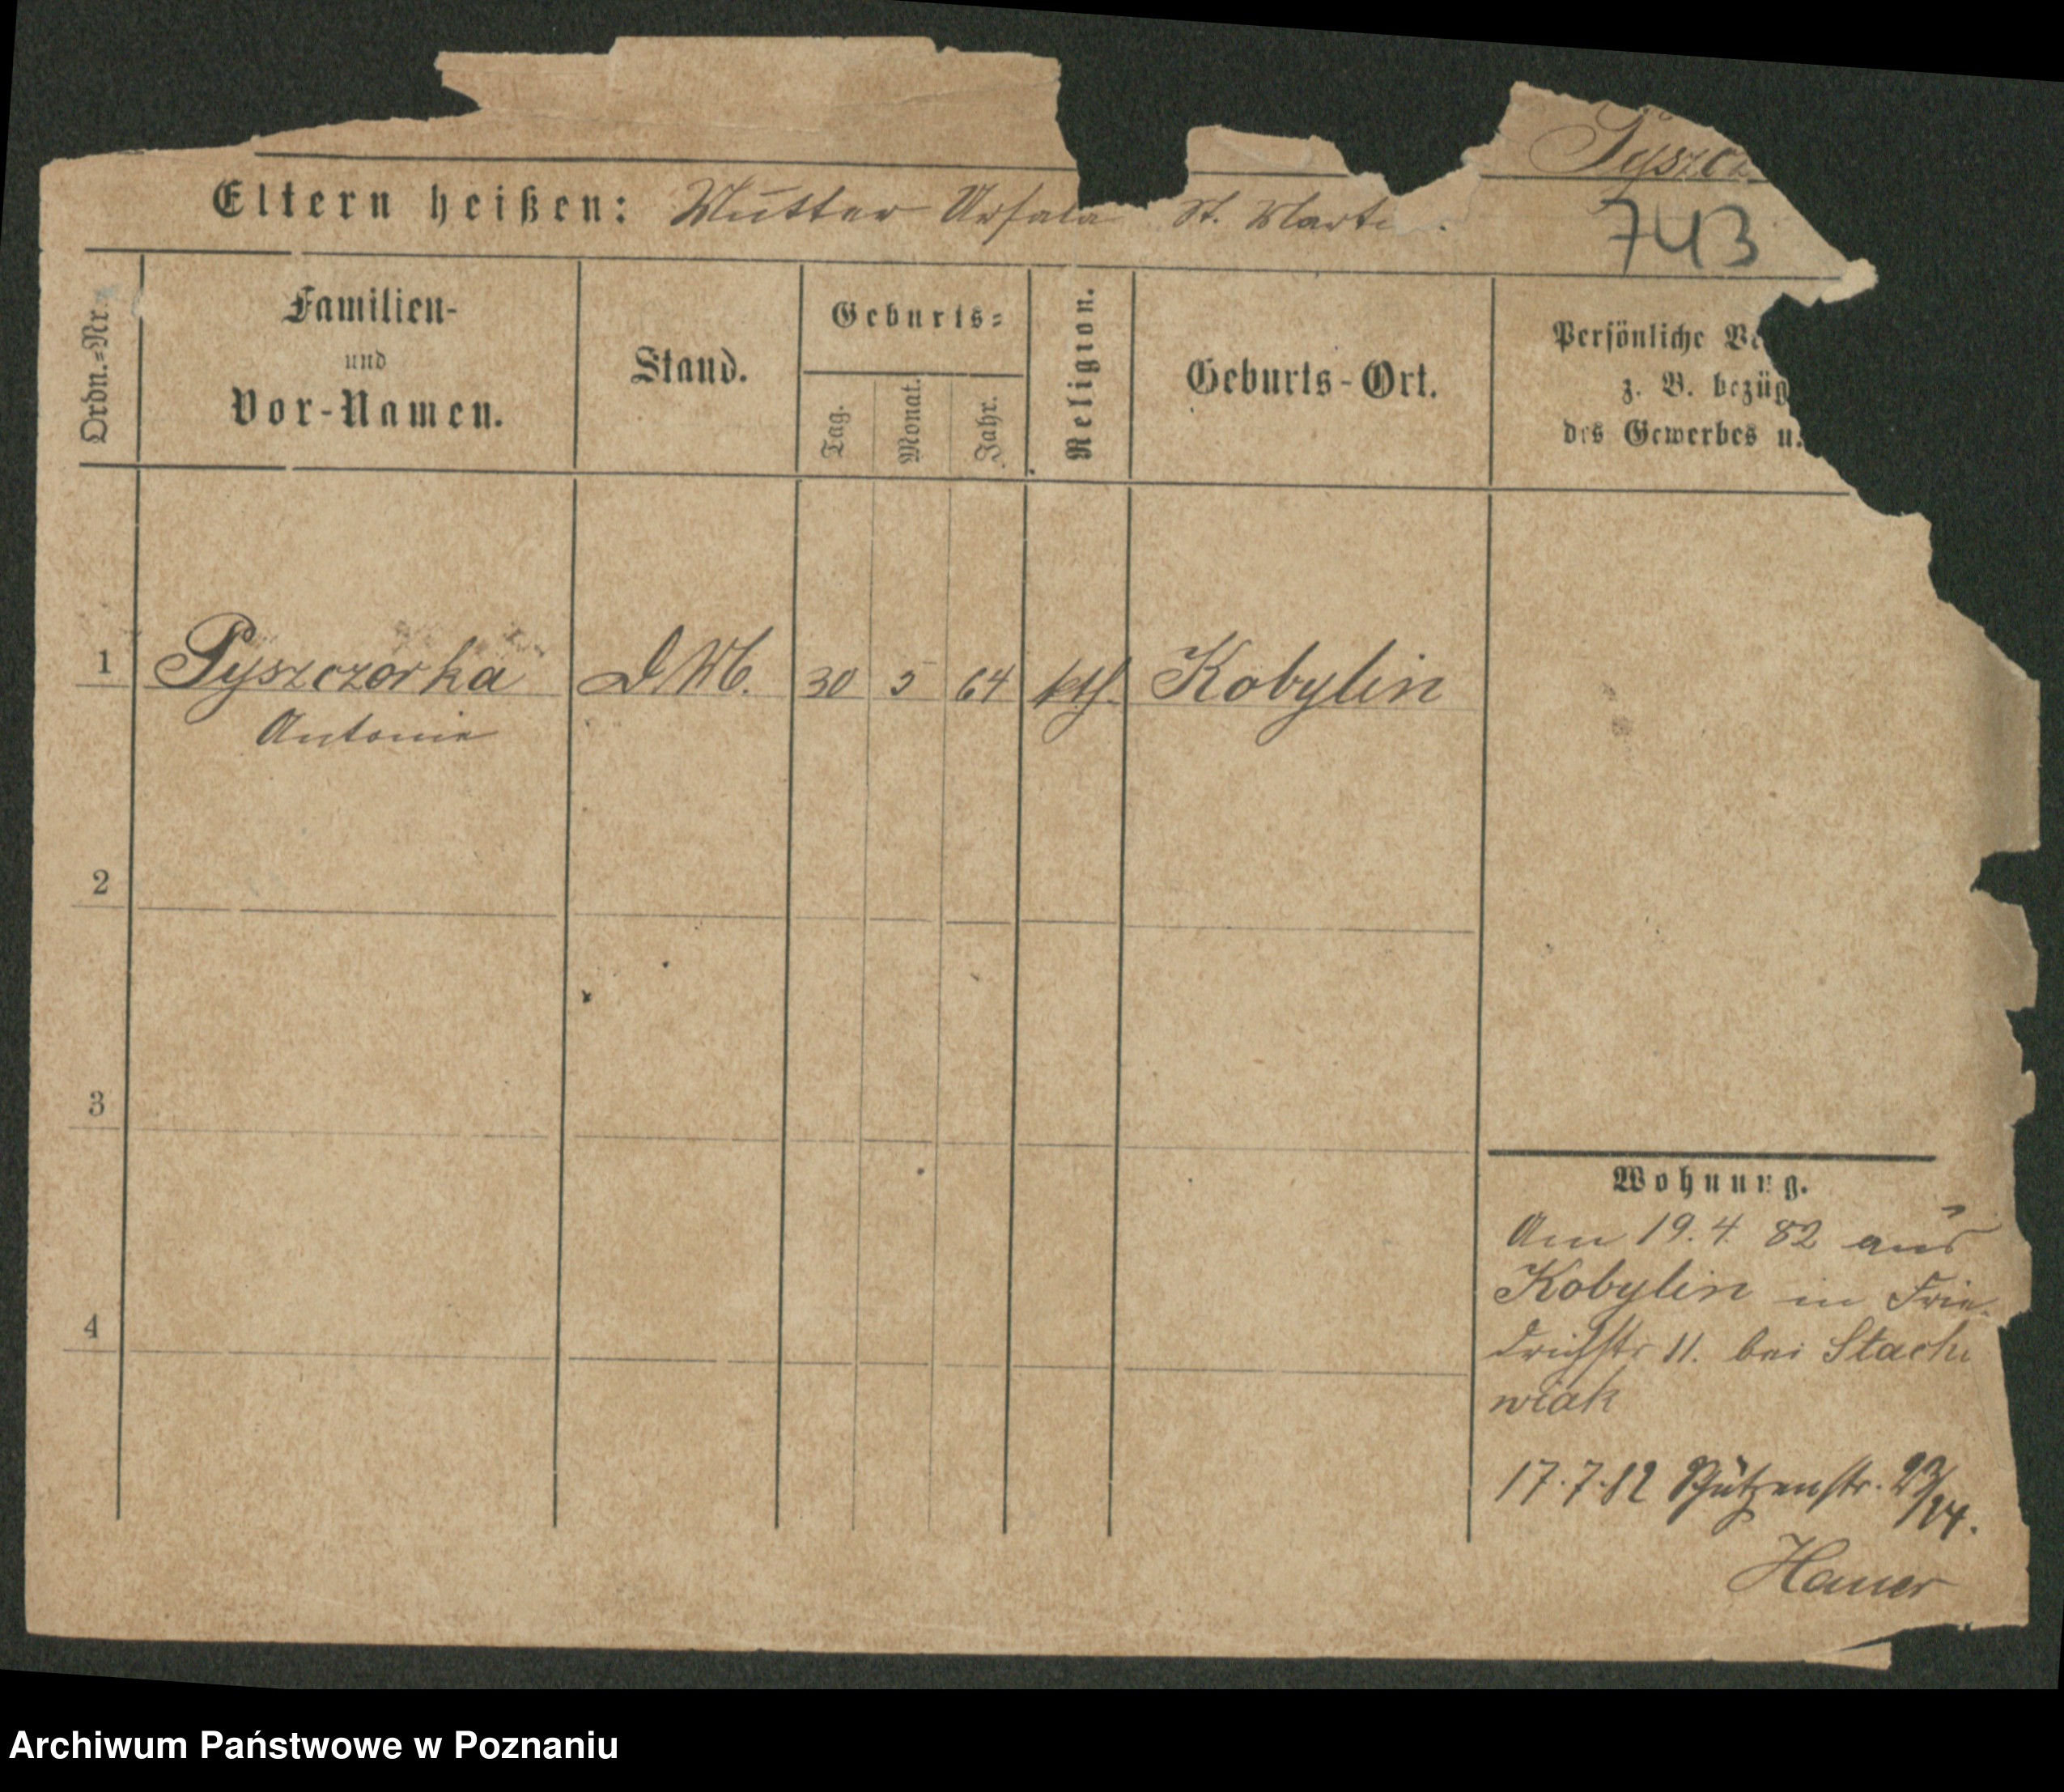 Pyszcz
Eltern heißen: Mutter Ursala St. Martin
743
Ordn.=Nr.
Familien-
und
Vor-Namen.
Stand.
Geburts=
Tag.
Monat.
Jahr.
Religion.
Geburts-Ort.
Persönliche Ve
z. B. bezüg
des Gewerbes u.
1 Pyszczorka D.M. 30 5 64 kth. Kobylin
Antonie
2
3
4
Wohnung.
Am 19.4 82 aus
Kobylin in Frie-
drichstr 11. bei Stach
wiak
17.7.82 Schützenstr. 23/24.
Hauer
Archiwum Państwowe w Poznaniu